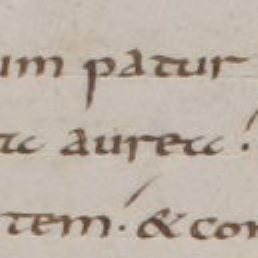 um patur
tc auretc.
tem. & con